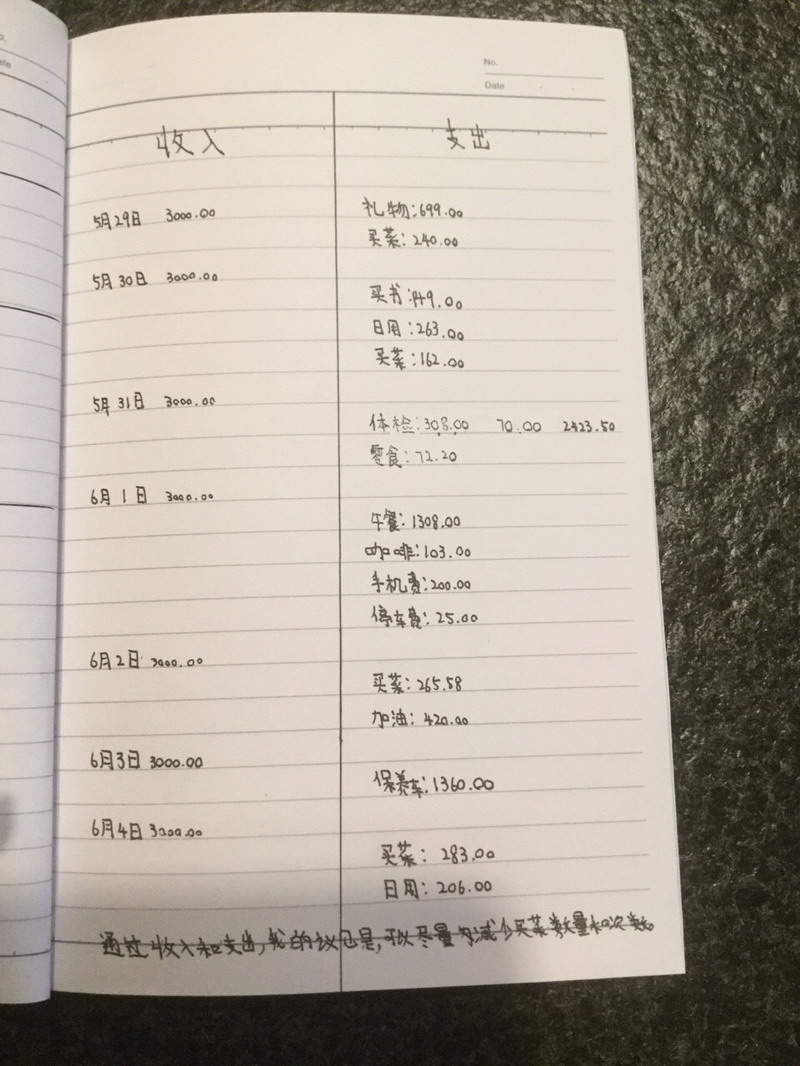 No.
Date
收入 支出
5月29日 3000.00 礼物:699.00
买菜:240.00
5月30日 3000.00
买书:149.00
日用:263.00
买菜:162.00
5月31日 3000.00
体检:308.00 70.00 2423.50
零食:72.20
6月1日 3000.00
午餐:1308.00
咖啡:103.00
手机费:200.00
停车费:25.00
6月2日 3000.00
买菜:265.58
加油:420.00
6月3日 3000.00
保养车:1360.00
6月4日 3000.00
买菜: 283.00
日用: 206.00
通过收入和支出,我的议也是,可以尽量为减少买菜数量和次数。